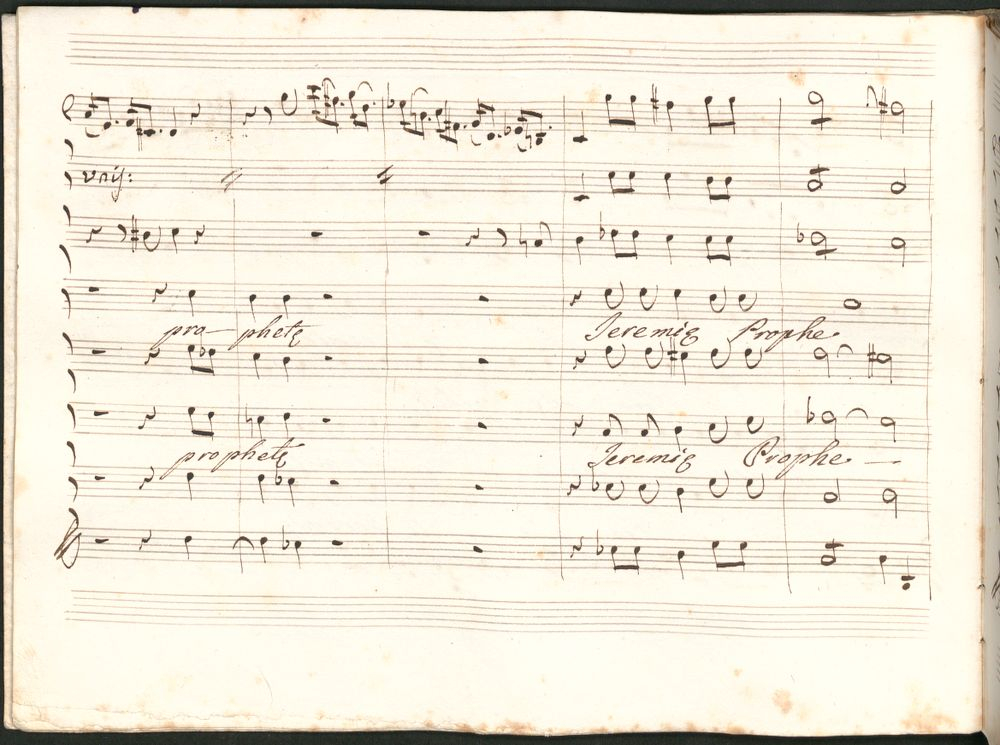 unis:
pro- phetę
Jeremię Prophe
prophetę
Jeremię Prophe -